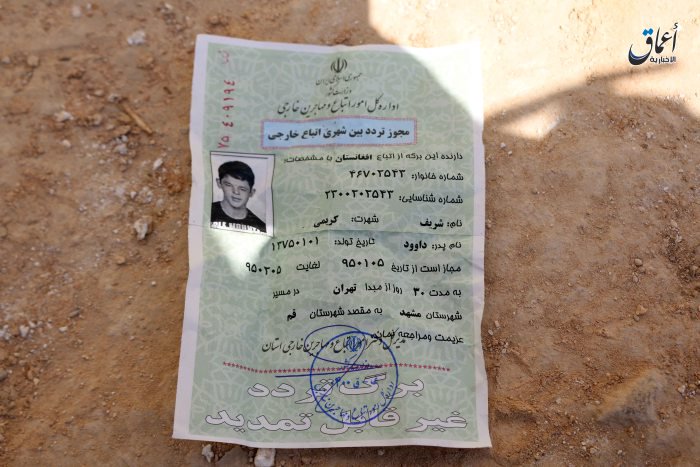 أعماق
الإخبارية
جمهوری اسلامی ایران
وزارت کشور
اداره کل امور اتباع و مهاجرین خارجی
مجوز تردد بین شهری اتباع خارجی
دارنده این برگه از اتباع افغانستان با مشخصات:
شماره خانوار: ۴۶۷۰۲۵۴۳
شماره شناسایی: ۲۳۰۰۲۰۲۵۴۳
نام: شریف شهرت: کریمی
نام پدر: داوود تاریخ تولد: ۱۳۷۵۰۱۰۱
مجاز است از تاریخ ۹۵۰۱۰۵ لغایت ۹۵۰۲۰۵
به مدت ۳۰ روز از مبدا تهران در مسیر
شهرستان مشهد به مقصد شهرستان قم
عزیمت ومراجعه نماند.
و مهاجرین خارجی استان
برگ تردد
غیر قابل تمدید